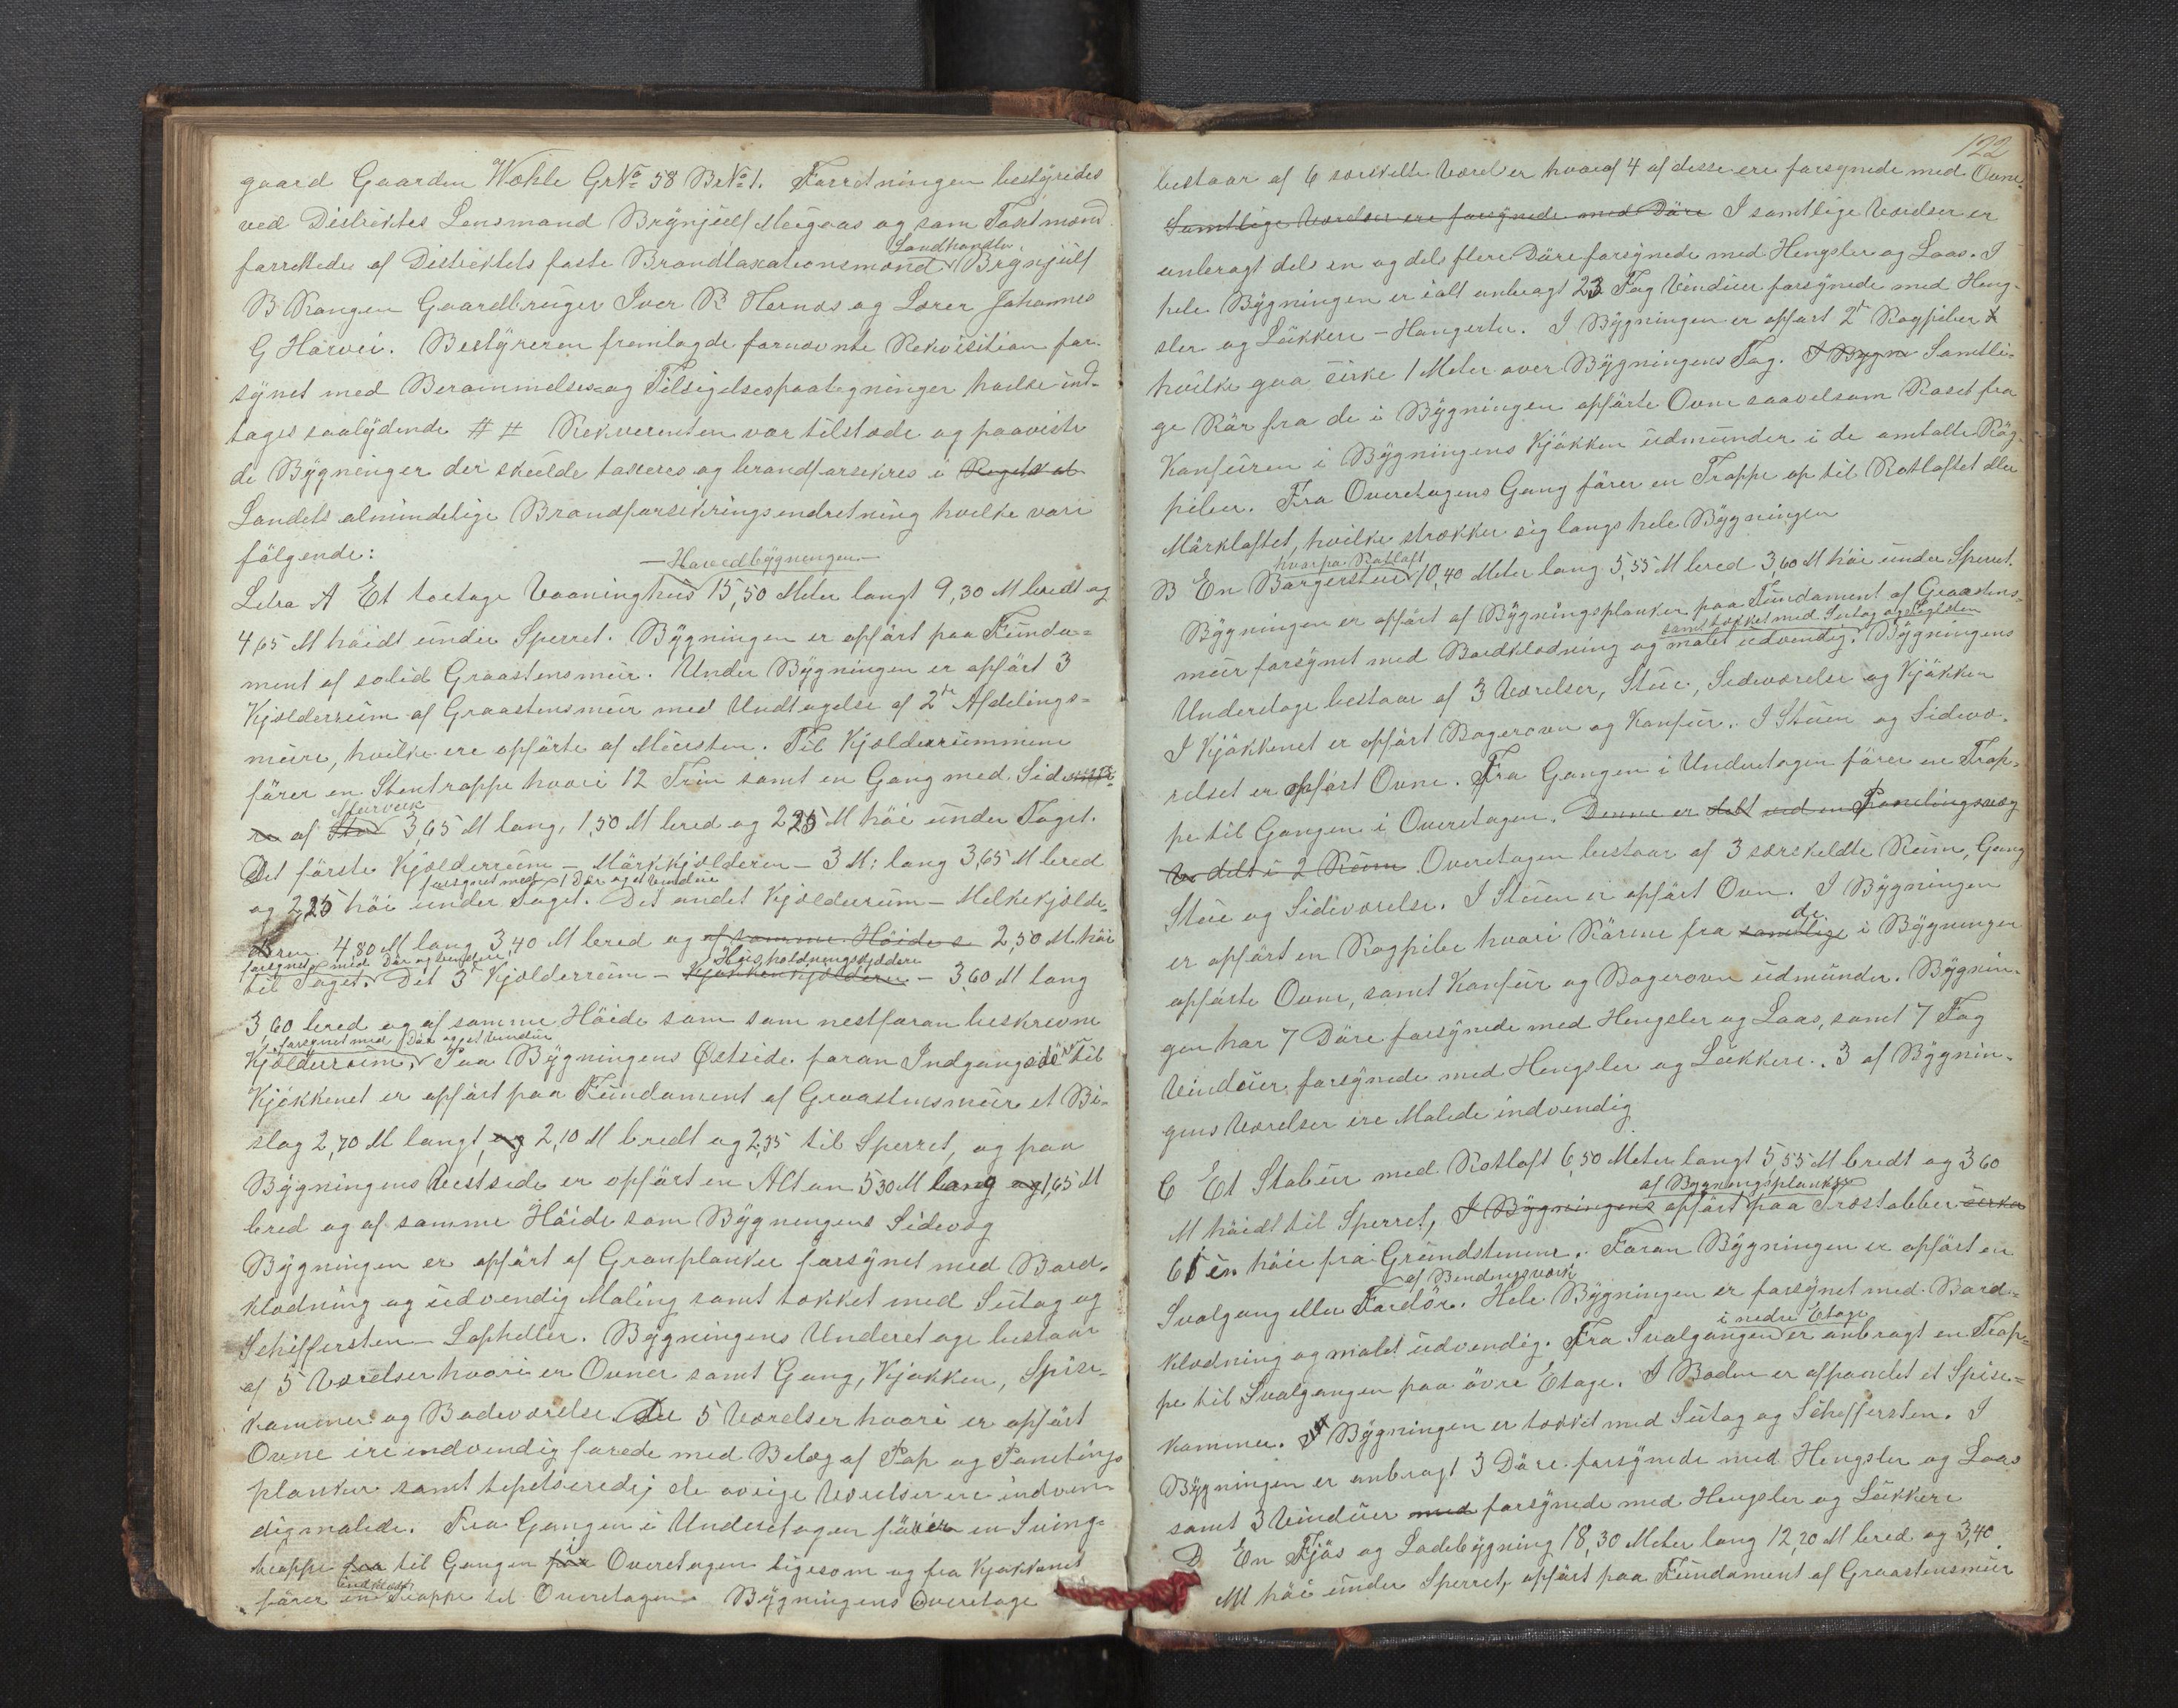 gaard Gaarden Wæhle GrNo 58 BrNo 1. Forretningen bestyredes
ved Distriktes Lensmand Brynjulf Meigaas og som Taxtmænd
forrettedes af Distriktets faste Brandtaxationsmænd Landhandler Brynjulf
B Rongen Gaardbruger Iver R Hernæs og Lærer Johannes
G Hørvei. Bestyreren fremlagde fornævnte Rekvisition for-
synet med Berammelses og Tilsigelsespaategninger hvilke ind-
tages saalydende ## Rekvirenten var tilstæde og paaviste
de Bygninger der skulde taxeres og brandforsikres i
Landets almindelige Brandforsikringsindretning hvilke vare
følgende:
— Hovedbygningen —
Letra A Et toetage Vaaninghus 15,50 Meter langt 9,30 M bredt og
4,65 M høidt under Sperret. Bygningen er opført paa Funda=
ment af solid Graastensmur. Under Bygningen er opført 3
Kjælderrum af Graastensmur med Undtagelse af 2de Afdelings=
mure, hvilke ere opførte af Mursten. Til Kjælderrummene
fører en Stentrappe hvori 12 Trin samt en Gang med Side
Murverk
re af 3,65 M lang, 1,50 M bred og 2,25 M høi under Taget.
Det første Kjælderrum — Mørkkjælderen — 3 M: lang 3,65 M bred
forsynet med 1 Dør og et Vindue
og 2,25 høi under Taget. Det andet Kjælderrum — Melkekjælde-
ren 4,80 M lang 3,40 M bred og af samme Høide s 2,50 M høi
forsynet med Dør og Vindue Husholdningskjælderen
til Taget. Det 3de Kjælderrum — Kjøkkenkjælderen — 3,60 M lang
3,60 bred og af samme Høide som som nestforan beskrevne
forsynet med 1 Dør og et Vindue
Kjælderrum, Paa Bygningens Østside foran Indgangsdøren til
Kjøkkenet er opført paa Fundament af Graastensmur et Bi-
slag 2,70 M langt, og 2,10 M bredt og 2,35 til Sperret, og paa
Bygningens Vestside er opført en Altan 5,30 M lang og 1,65 M
bred og af samme Høide som Bygningens Sidevæg
Bygningen er opført af Granplanker forsynet med Bord-
klædning og udvendig Maling samt tækket med Sutag og
Schiffersten — Lapheller. Bygningens Underetage bestaar
af 5 Værelser hvori er Ovner samt Gang, Kjøkken, Spise-
kammer og Badeværelse. De 5 Værelser hvori er opført
Ovne ere indvendig forede med Belæg af Pap og Panelings
planker samt tepetserede; de øvrige Værelser ere indven-
dig malede. Fra Gangen i Underetagen fører en Sving-
trappe fra til Gangen i Overetagen ligesom og fra Kjøkkenet
fører en Trappe til Overetagen. Bygningens Overetage
122
bestaar af 6 særskilte Værelser hvoraf 4 af desse ere forsynede med Ovne.
Samtlige Værelser ere forsynede med Døre I samtlige Værelser er
anbragt dels en og dels flere Døre forsynede med Hengsler og Laas. I
hele Bygningen er ialt anbragt 23 Fag Vinduer forsynede med Heng-
sler og Lukkere — Hangerter. I Bygningen er opført 2de Røgpiber
hvilke gaa cirke 1 Meter over Bygningens Tag. I Bygn Samtli-
ge Rør fra de i Bygningen opførte Ovne saavelsom Røset fra
Konfuren i Bygningens Kjøkken udmunder i de omtalte Røg-
piber. Fra Overetagens Gang fører en Trappe op til Rotloftet eller
Mørkloftet, hvilke strækker sig langs hele Bygningen
hvorpaa Rotloft
B En Borgerstue 10,40 Meter lang 5,55 M bred 3,60 M høi under Sperret.
Bygningen er opført af Bygningsplanker paa Fundament af Graastens-
samt tækket med Sutag og Teglsten
mur forsynet med Bordklædning og malet udvendig. Bygningens
Underetage bestaar af 3 Værelser, Stue, Sideværelse og Kjøkken
I Kjøkkenet er opført Bagerovn og Konfur. I Stuen og Sidevæ-
relset er opført Ovne. Fra Gangen i Underetagen fører en Trap-
pe til Gangen i Overetagen. Denne er delt ved en Panelingsvæg
delt i 2 Rum Overetagen bestaar af 3 særskildte Rum, Gang
Stue og Sideværelse. I Stuen er opført Ovn. I Bygningen
de
er opført en Røgpibe hvori Rørene fra samtlige i Bygningen
opførte Ovne, samt Konfur og Bagerovn udmunder. Bygnin-
gen har 7 Døre forsynede med Hengsler og Laas, samt 7 Fag
Vinduer forsynede med Hengsler og Lukkere. 3 af Bygnin-
gens Værelser ere Malede indvendig
C Et Stabur med Rotloft 6,50 Meter langt 5,55 M bredt og 3,60
af Bygningsplanker
M høidt til Sperret, I Bygningens opført paa Træstabber cirka
høie fra Grundstenene. Foran Bygningen er opført en
af Bendingsværk
Svalgang eller Fordør. Hele Bygningen er forsynet med Bord-
i nedre Etage
klædning og malet udvendig. Fra Svalgangen er anbragt en Trap-
pe til Svalgangen paa øvre Etage. I Boden er afpanelet et Spise-
kammer. Bygningen er tækket med Sutag og Schiffersten. I
Bygningen er anbragt 3 Døre forsynede med Hengsler og Laas
samt 3 Vinduer med forsynede med Hengsler og Lukkere
D En Fjøs og Ladebygning 18,30 Meter lang 12,20 M bred og 3,40
M høi under Sperret, opført paa Fundament af Graastensmur